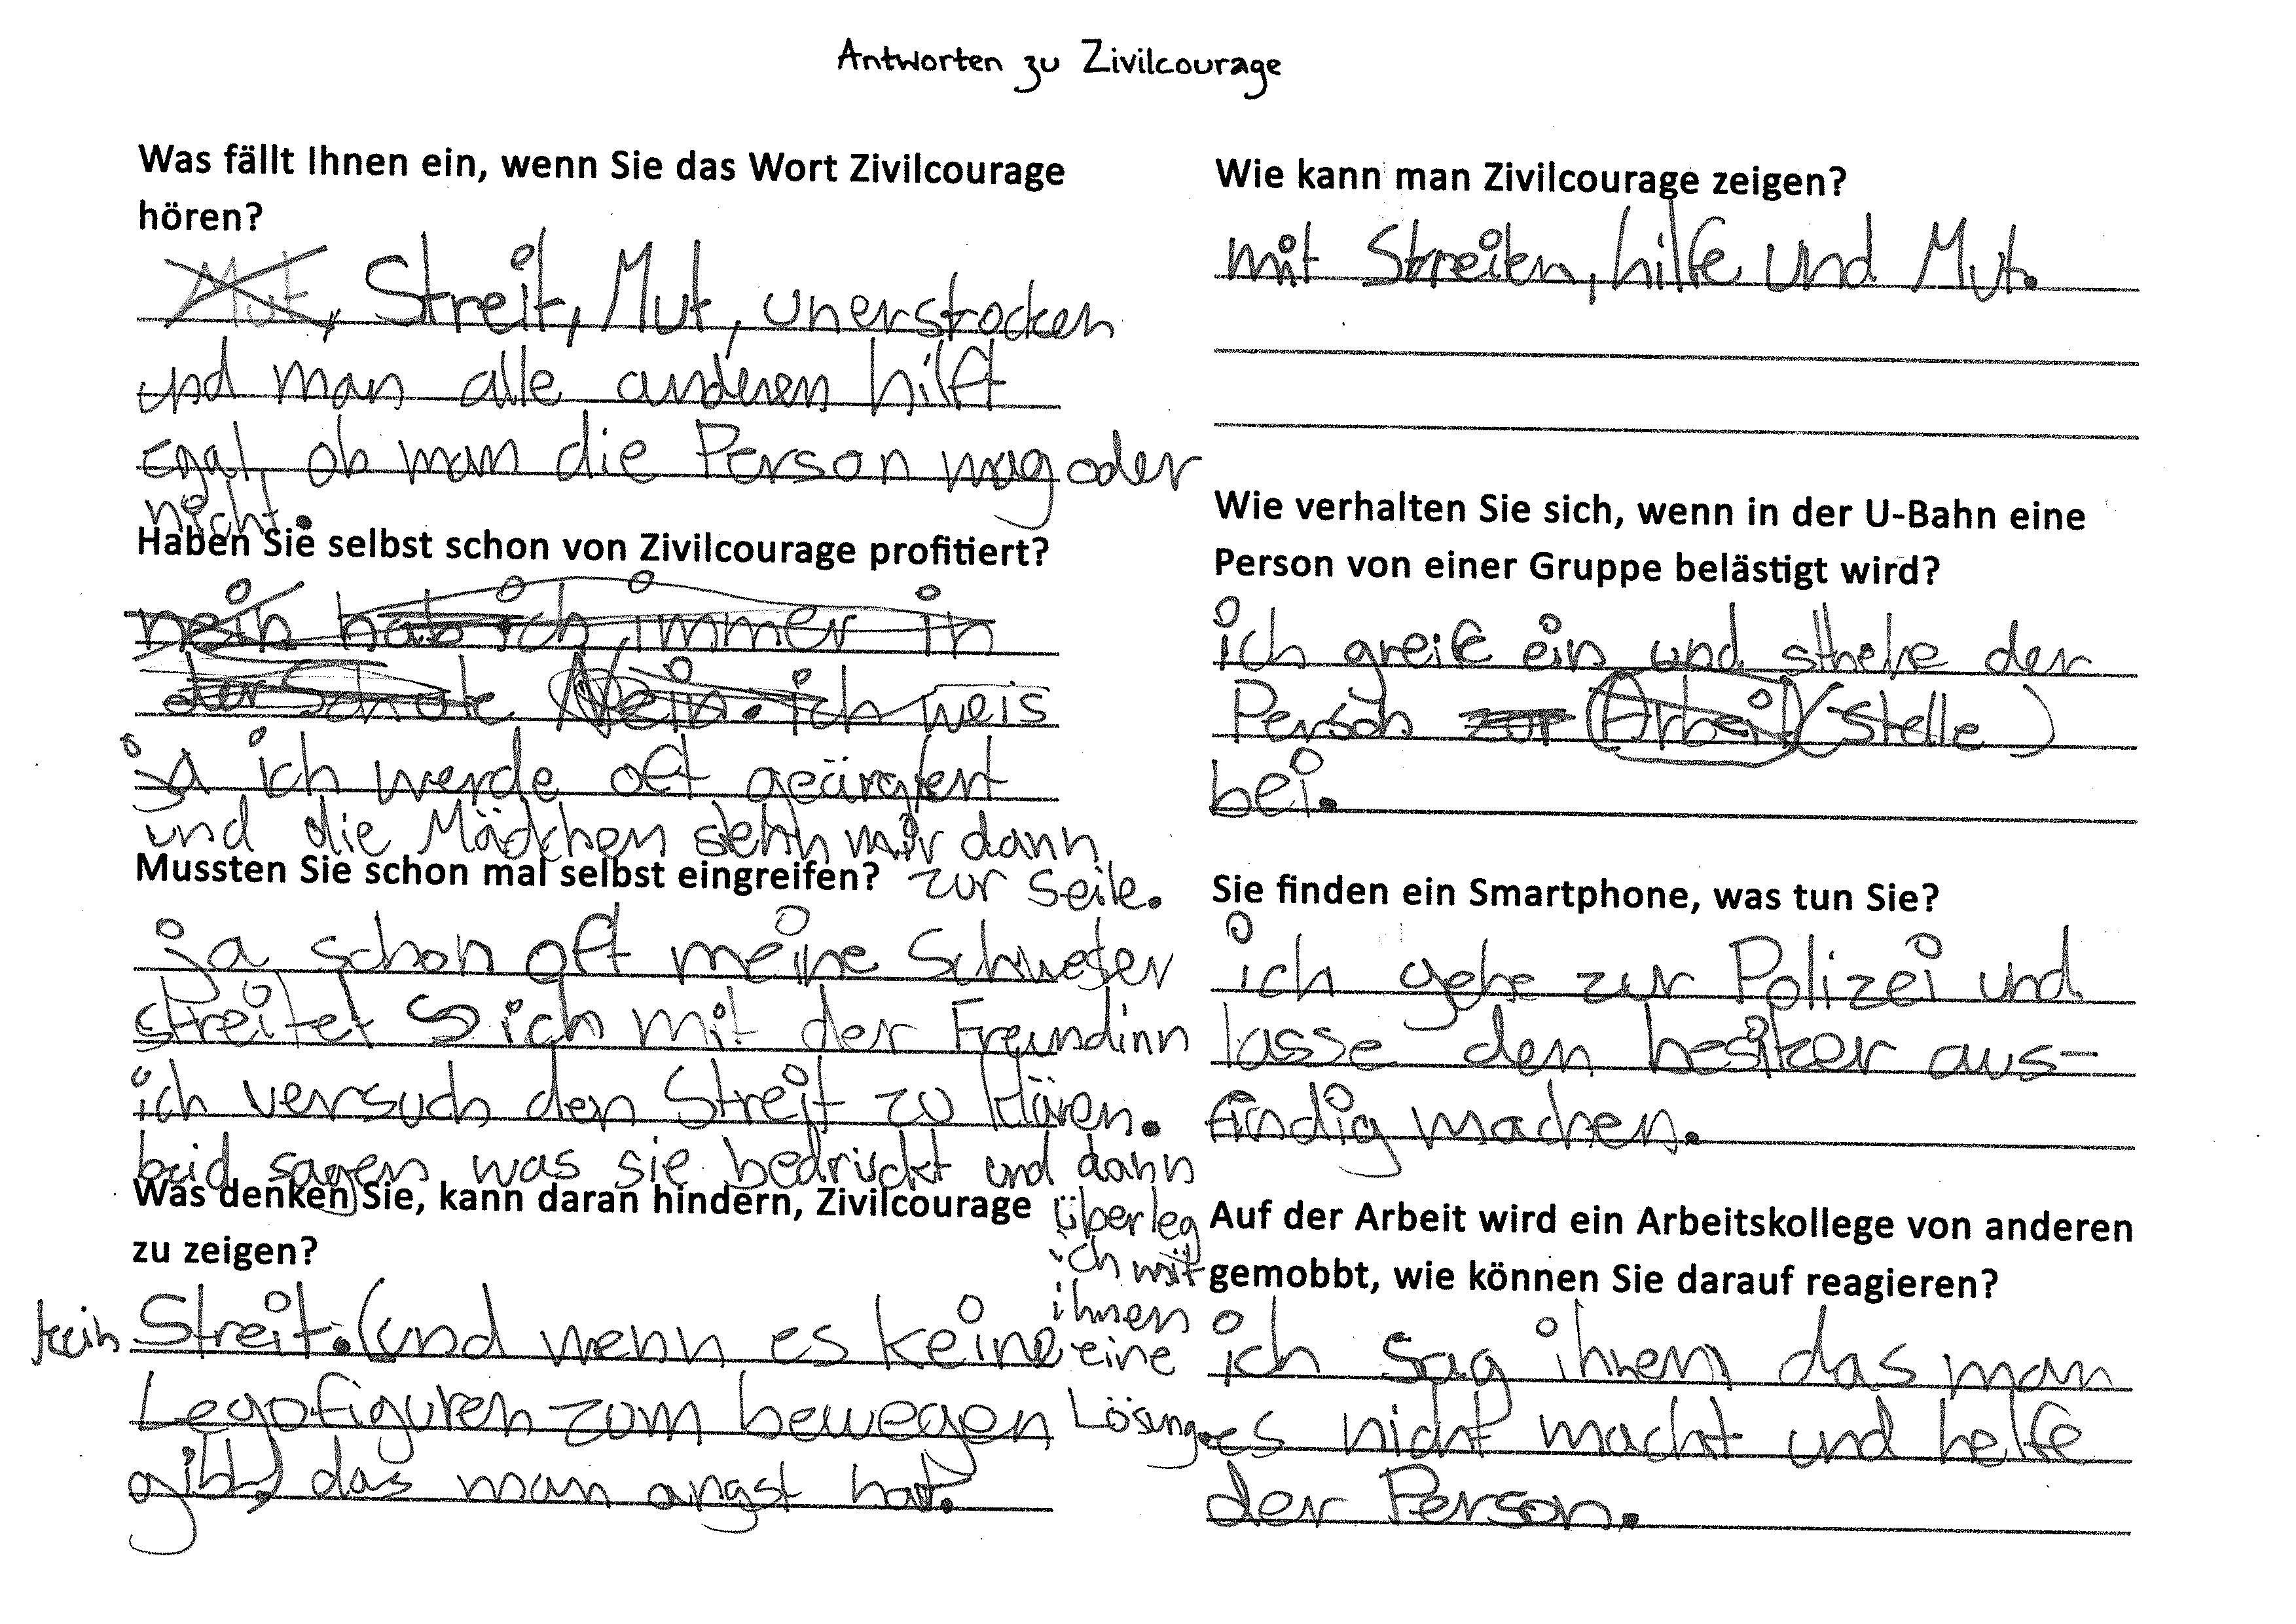 Antworten zu Zivilcourage
Was fällt Ihnen ein, wenn Sie das Wort Zivilcourage
hören?
Mut, Streit, Mut, unerstrocken
und man alle anderen hilft
Egal, ob man die Person mag oder
nicht.
Haben Sie selbst schon von Zivilcourage profitiert?
nein hab ich immer in
der Schule Nein. ich weis
jA ich werde oft geärgert
und die Mädchen stehn mir dann
zur Seite.
Mussten Sie schon mal selbst eingreifen?
ja schon oft meine Schwester
streitet sich mit der Freundinn
ich versuch den Streit zu klären.
beid sagen was sie bedrückt und dann
überleg
ich mit
ihnen
eine
Lösung.
Was denken Sie, kann daran hindern, Zivilcourage
zu zeigen?
kein Streit. (und wenn es keine
Legofiguren zum bewegen
gibt) das man angst hat.
Wie kann man Zivilcourage zeigen?
mit Streiten, hilfe und Mut.
Wie verhalten Sie sich, wenn in der U-Bahn eine
Person von einer Gruppe belästigt wird?
ich greife ein und sthehe der
Person zur (Arbeit) (Stelle)
bei.
Sie finden ein Smartphone, was tun Sie?
ich gehe zur Polizei und
lasse den besitzer aus-
findig machen.
Auf der Arbeit wird ein Arbeitskollege von anderen
gemobbt, wie können Sie darauf reagieren?
ich sag ihnen das man
es nicht macht und helfe
der Person.